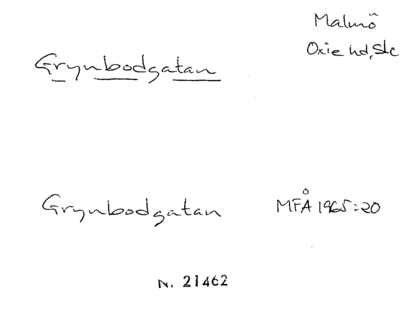 Malmö
Oxie hd, Skc
Grynbodgatan
Grynbodgatan MFÅ 1965:20
N. 21462